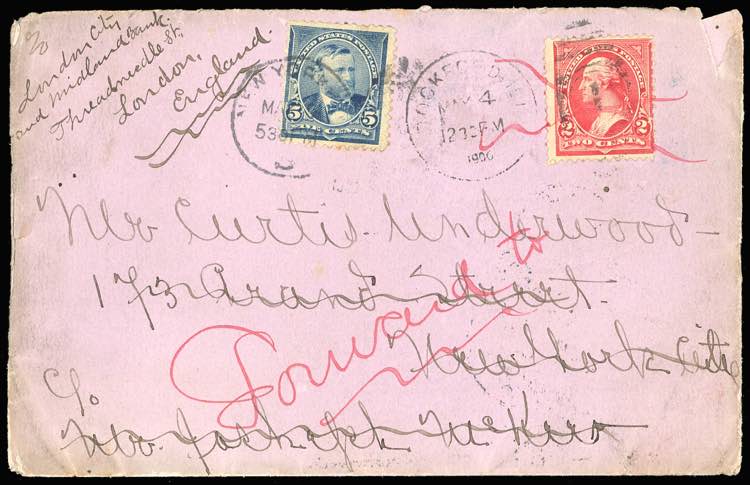 c/o
London City
and Midland Bank.
Threadneedle St.
London,
England.
UNITED STATES POSTAGE
5 5
FIVE CENTS
NEW YORK
MA
530
ROCKFORD, ILL
MAY 4
1230PM
1900
UNITED STATES POSTAGE
2 2
TWO CENTS
Mr Curtis Underwood
173 Grand Street.
New York City
Forward to
c/o
Mr Joshaph McKees